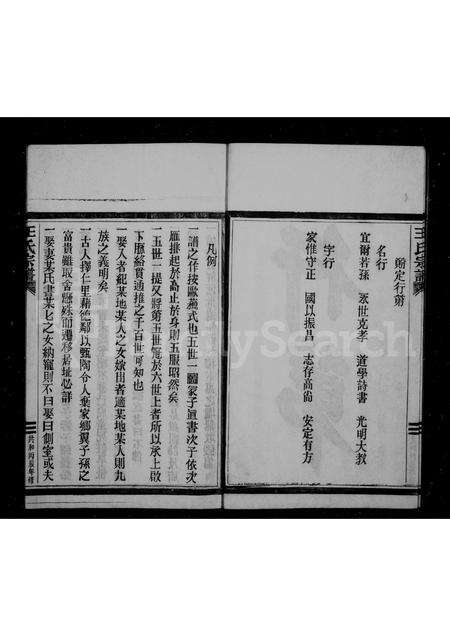 王氏宗譜
擬定行第
名行
宜爾若孫 永世克孝 道學詩書 光明大教
字行
家惟守正 國以振昌 志存高尚 安定有方
凡例
一譜之作按歐蘇式也五世一圖蒙子眞書次子依次
雁排起於高止於身則五服昭然矣
一五世一提又將第五世寃於六世上者所以承上啟
下脈絡貫通推之千百世可知也
一娶入者紀某地某人之女嫁出者適某地某人則九
族之義明矣
一古人擇仁里藉德鄰以甄陶令人棄家鄉翼子孫之
富貴雖取舍懸殊而遷移居址必詳
一娶妻某氏書某七之女納寵則不曰娶曰側室或夫
王氏宗譜
共和丙辰年修
FamilySearch